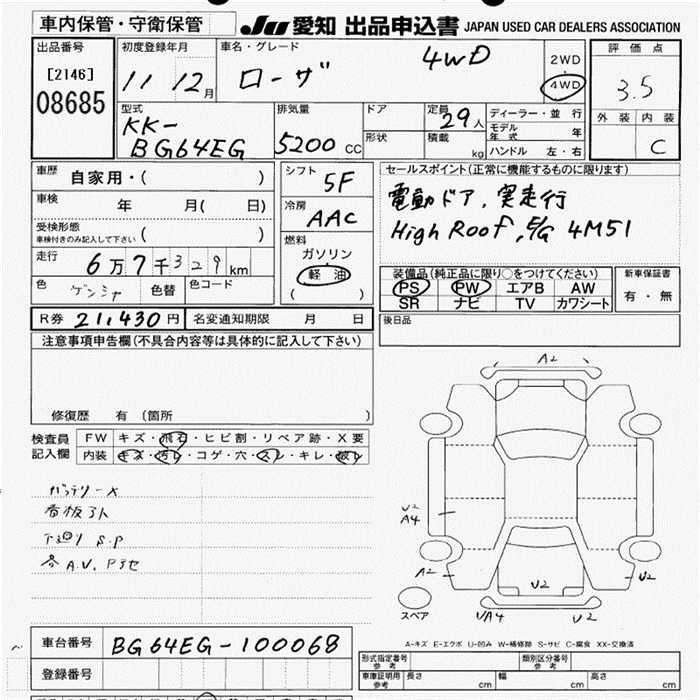 車内保管・守衛保管
JU 愛知 出品申込書 JAPAN USED CAR DEALERS ASSOCIATION
出品番号
[2146]
08685
初度登録年月
11 12月
車名・グレード
ローザ 4WD
2WD
4WD
評価点
3.5
外装 内装
C
型式
KK-
BG64EG
排気量
5200 cc
ドア
形状
定員
29人
積載
kg
ディーラー・並行
モデル年式 年
ハンドル 左・右
車歴 自家用・( )
車検 年 月( 日)
受検形態
車検付きのみ記入して下さい ( )
走行 6万7千329km
色 ゲンシャ 色替 色コード
シフト
5F
冷房
AAC
燃料
ガソリン
軽油
( )
セールスポイント(正常に機能するものに限ります)
電動ドア、実走行
High Roof, E/G 4M51
装備品(純正品に限り○をつけてください)
PS PW エアB AW
SR ナビ TV カワシート
新車保証書
有・無
R券 21,430円 名変通知期限 月 日
後日品
注意事項申告欄(不具合内容等は具体的に記入して下さい)
修復歴 有 (箇所 )
検査員
記入欄
FW キズ・飛石・ヒビ割・リペア跡・X要
内装 キズ・汚レ・コゲ・穴・スレ・キレ・破レ
バッテリーX
看板跡
下廻り S.P
A.V.
A2
U2
A4
A2
U2
U2
UA4
スペア
A-キズ E-エクボ U-凹み W-補修跡 S-サビ C-腐食 XX-交換済
車台番号 BG64EG-100068
登録番号
形式指定番号
参考
類別区分番号
参考
車庫証明用
参考
長さ cm 幅 cm 高さ cm